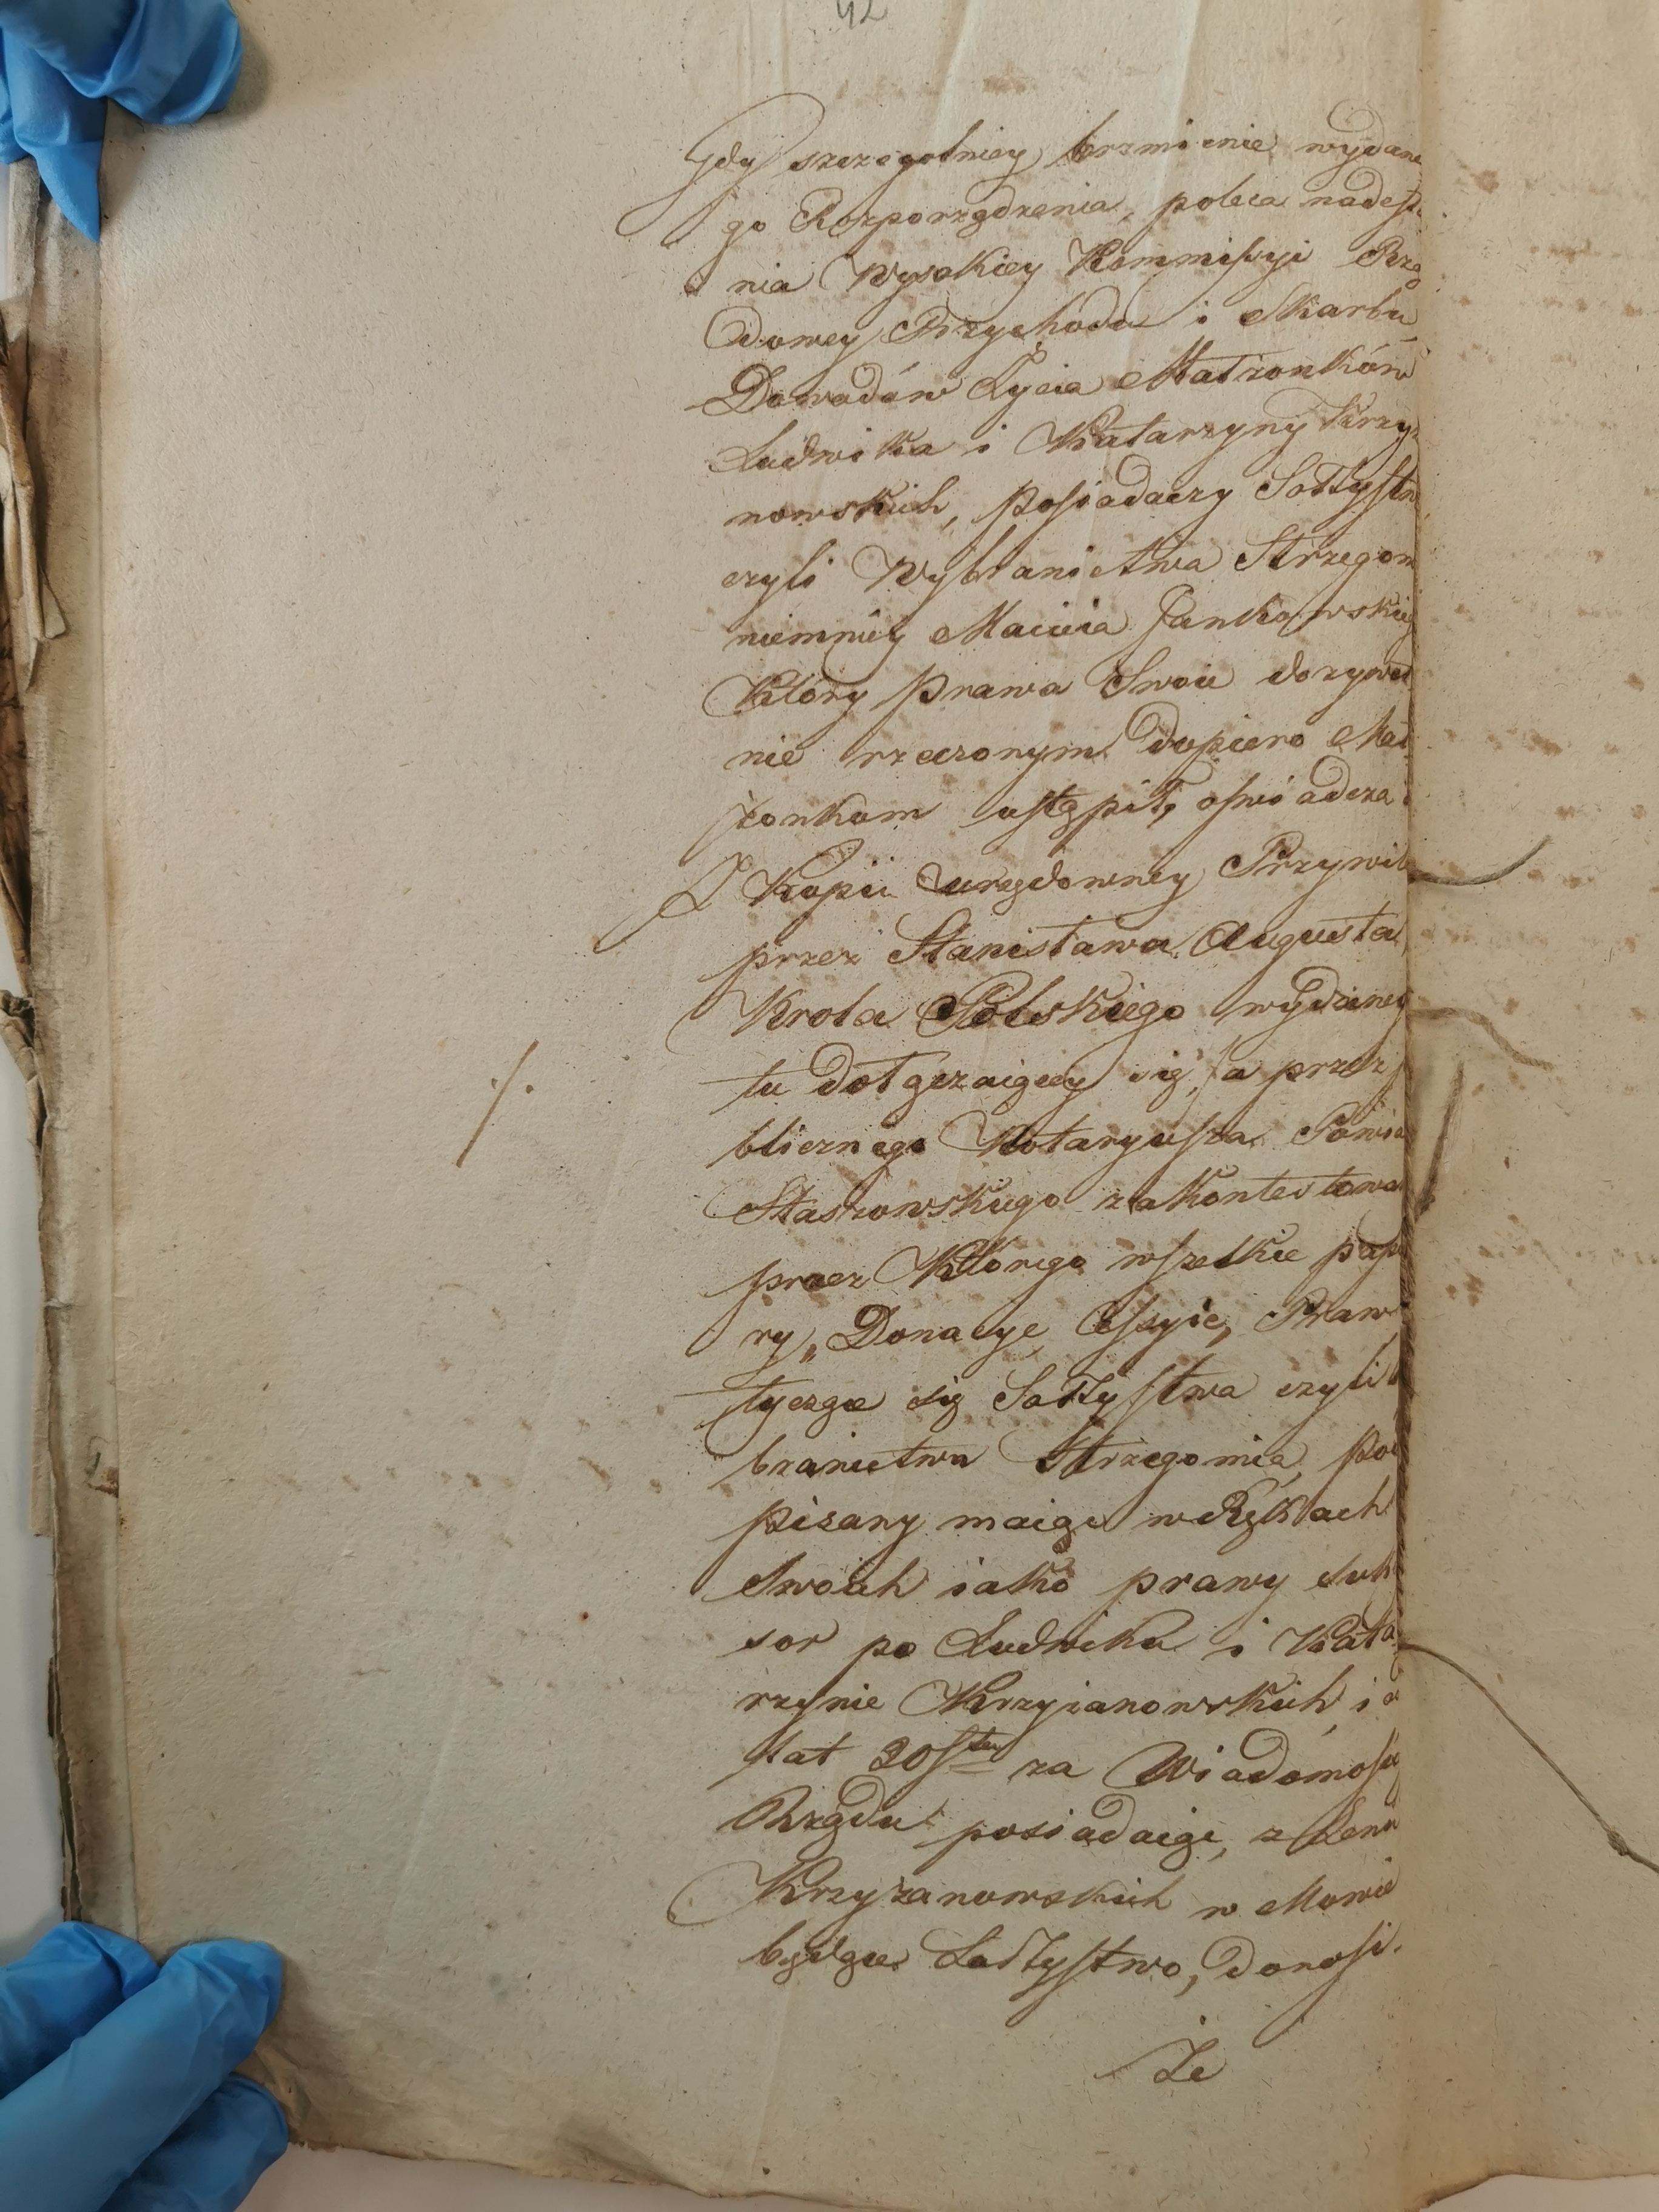 42
Gdy szczegolniey brzmienie wydane
go Rozporządzenia, poleca nadesła
nia Wysokiey Kommissyi Rzą
dowey Przychodu i Skarbu
Dowodów Życia Małżonków
Ludwika i Katarzyny Krzyż
nowskich, posiadaczy Sołtystw
czyli Wybraniectwa Strzegom
niemniey Macieia Jankowskieg
Który prawa Swoie dożywot
nie rzeczonym dopiero Mał
żonkom ustąpił, oświadcza
Z Kopii urzędowney Przywil
przez Stanisława Augusta
Krola Polskiego wydaney
tu dołączaiącey się, a przez
./.
blicznego Notaryusza Powia
Staszowskiego zakontestowa
przez Którego wszelkie papi
ry, Donacye, Cessyie, Praw
tyczące się Sołtystwa czyli
braniectwa Strzegomia, pod
pisany maiąc w Rękach
Swoich iako prawy suk
sor po Ludwiku i Kata
rzynie Krzyżanowskich i o
lat 20stu za Wiadomości
Rządu posiadaiąc, z
Krzyżanowskich w Mowie
będące Sołtystwo, donosi.
Że